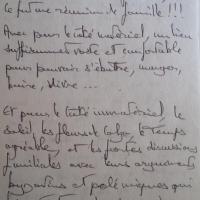 Ce future réunion de famille !!!
Avec pour le côté matériel, un lieu
suffisamment vaste et confortable
pour pouvoir s'ébattre, manger,
boire, vivre ...
Et pour le côté immatériel le
soleil, les fleurs et le temps
agréable, et les fortes discussions
familiales avec leurs arguments
byzantins et polémiques qui